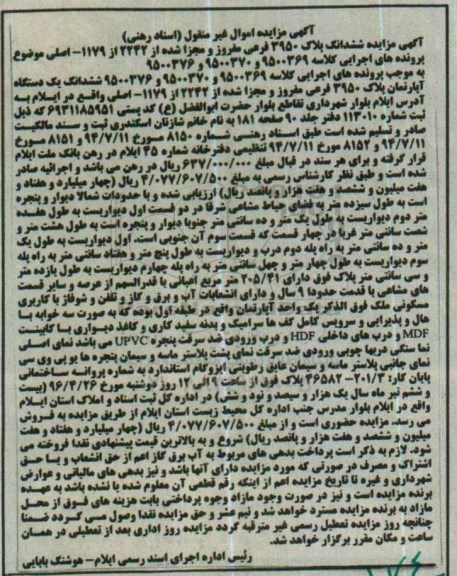 آگهی مزایده اموال غیر منقول (اسناد رهنی)
آگهی مزایده ششدانگ پلاک ۳۹۵۰ فرعی مفروز و مجزا شده از ۲۲۴۲ از ۱۱۷۹- اصلی موضوع
پرونده های اجرایی کلاسه ۹۵۰۰۳۶۹ و ۹۵۰۰۳۷۰ و ۹۵۰۰۳۷۶
به موجب پرونده های اجرایی کلاسه ۹۵۰۰۳۶۹ و ۹۵۰۰۳۷۰ و ۹۵۰۰۳۷۶ ششدانگ یک دستگاه
آپارتمان پلاک ۳۹۵۰ فرعی مفروز و مجزا شده از ۲۲۴۲ از ۱۱۷۹- اصلی واقع در ایلام به
آدرس ایلام بلوار شهرداری تقاطع بلوار حضرت ابوالفضل (ع) کد پستی ۶۹۳۱۱۸۵۹۵۱ که ذیل
ثبت شماره ۱۱۳۰۱۰ دفتر جلد ۹۰ صفحه ۱۸۱ به نام خانم شازنان اسکندری ثبت و سند مالکیت
صادر و تسلیم شده است طبق اسناد رهنی شماره ۸۱۵۰ مورخ ۹۴/۷/۱۱ و ۸۱۵۱ مورخ
۹۴/۷/۱۱ و ۸۱۵۲ مورخ ۹۴/۷/۱۱ تنظیمی دفترخانه شماره ۴۵ ایلام در رهن بانک ملت ایلام
قرار گرفته و برای هر سند در قبال مبلغ ۶۳۷/۰۰۰/۰۰۰ ریال در رهن می باشد و اجرائیه صادر
شده است و طبق نظر کارشناس رسمی به مبلغ ۴/۰۷۷/۶۰۷/۵۰۰ ریال (چهار میلیارد و هفتاد و
هفت میلیون و ششصد و هفت هزار و پانصد ریال) ارزیابی شده و با حدودات شمالا دیوار و پنجره
است به طول سیزده متر به فضای حیاط مشاعی شرقا در دو قسمت اول دیواریست به طول هفده
متر دوم دیواریست به طول یک متر و ده سانتی متر جنوبا دیوار و پنجره است به طول هشت متر و
شصت سانتی متر غربا در چهار قسمت که قسمت سوم آن جنوبی است. اول دیواریست به طول یک
متر و ده سانتی متر به راه پله دوم درب و دیواریست به طول پنج متر و هفتاد سانتی متر به راه پله
سوم دیواریست به طول چهار متر و چهل سانتی متر به راه پله چهارم دیواریست به طول یازده متر
و سی سانتی متر پلاک فوق دارای ۲۰۵/۴۱ متر مربع اعیانی با قدرالسهم از عرصه و سایر قسمت
های مشاعی با قدمت حدودا ۹ سال و دارای انشعابات آب و برق و گاز و تلفن و شوفاژ با کاربری
مسکونی ملک فوق الذکر یک واحد آپارتمان واقع در طبقه اول بوده که به صورت سه خوابه با
هال و پذیرایی و سرویس کامل کف ها سرامیک و بدنه سفید کاری و کاغذ دیواری با کابینت
MDF و درب های داخلی HDF و درب ورودی ضد سرقت پنجره UPVC می باشد نمای اصلی
نما سنگی دربها چوبی ورودی ضد سرقت نمای پشت پلاستر ماسه و سیمان پنجره ها یو پی وی سی
نمای جانبی پلاستر ماسه و سیمان عایق رطوبتی ایزوگام استاندارد به شماره پروانه ساختمانی
پایان کار: ۲۰۱/۳- ۴۶۵۸۲ پلاک فوق از ساعت ۹ الی ۱۲ روز دوشنبه مورخ ۹۶/۴/۲۶ (بیست
و ششم تیر ماه سال یک هزار و سیصد و نود و شش) در اداره کل ثبت اسناد و املاک استان ایلام
واقع در ایلام بلوار مدرس جنب اداره کل محیط زیست استان ایلام از طریق مزایده به فروش
می رسد. مزایده حضوری است و از مبلغ ۴/۰۷۷/۶۰۷/۵۰۰ ریال (چهار میلیارد و هفتاد و هفت
میلیون و ششصد و هفت هزار و پانصد ریال) شروع و به بالاترین قیمت پیشنهادی نقدا فروخته می
شود. لازم به ذکر است پرداخت بدهی های مربوط به آب برق گاز اعم از حق انشعاب و یا حق
اشتراک و مصرف در صورتی که مورد مزایده دارای آنها باشد و نیز بدهی های مالیاتی و عوارض
شهرداری و غیره تا تاریخ مزایده اعم از اینکه رقم قطعی آن معلوم شده یا نشده باشد به عهده
برنده مزایده است و نیز در صورت وجود مازاد وجوه پرداختی بابت هزینه های فوق از محل
مازاد به برنده مزایده مسترد خواهد شد و نیم عشر و حق مزایده نقدا وصول می گردد ضمنا
چنانچه روز مزایده تعطیل رسمی غیر مترقبه گردد مزایده روز اداری بعد از تعطیلی در همان
ساعت و مکان مقرر برگزار خواهد شد.
رئیس اداره اجرای اسناد رسمی ایلام- هوشنگ بابایی